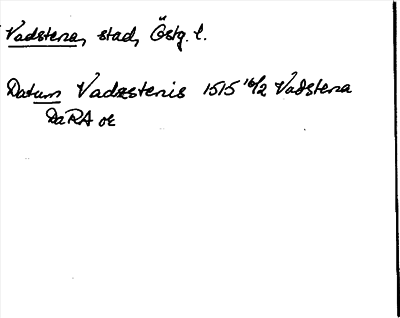 Vadstena, stad, Östg. l.
Datum Vadzstenis 1515 16/2 Vadstena
DaRA oc